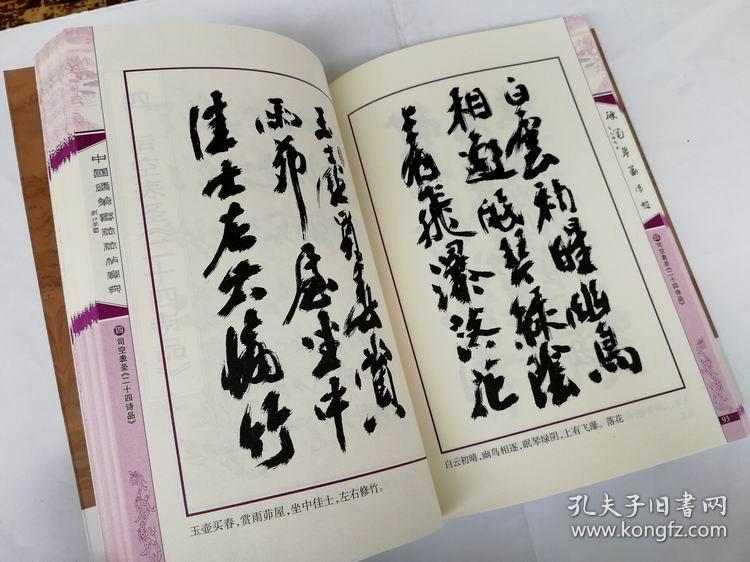 四 司空表圣《二十四诗品》
玉壺買春賞
雨茆屋坐中
佳士左右脩竹
玉壶买春,赏雨茆屋,坐中佳士,左右修竹。
白雲初晴幽鳥
相逐眠琴綠陰
上有飛瀑落花
白云初晴,幽鸟相逐,眠琴绿阴,上有飞瀑。落花
四 司空表圣《二十四诗品》
93
孔夫子旧书网
www.kongfz.com